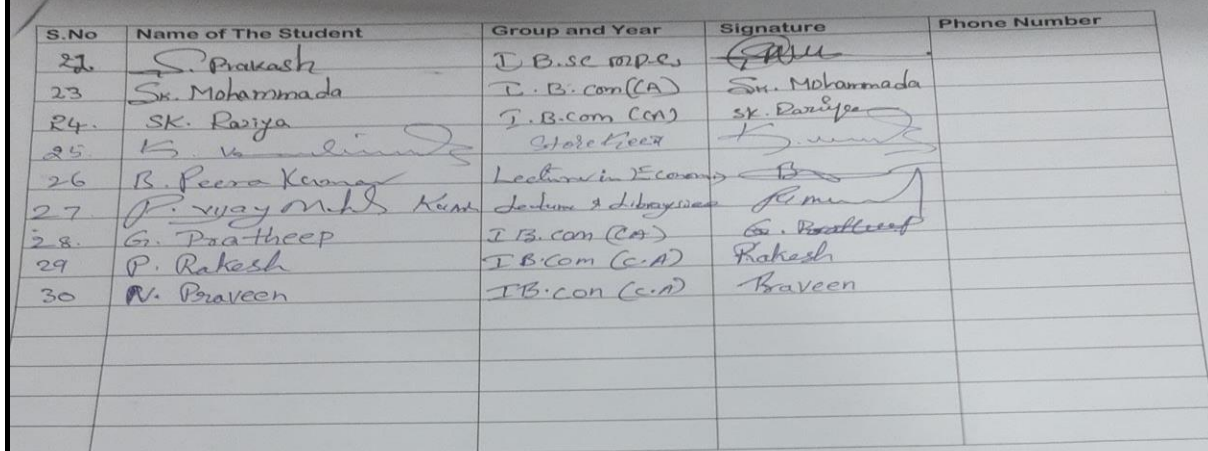 S.No Name of The Student Group and Year Signature Phone Number
S. Prakash I B.sc m.p.c.
23 SK. Mohammada I. B. com (CA) SK. Mohammada
24. SK. Raziya I. B.com (CA) SK. Raziya
25. K. Store Keeper
26 B. Peera Kumar Lecturer in Economics
27 P. vijay Kumar Lecturer
28. G. Pratheep I B.com (CA) G. Pratheep
29 P. Rakesh I B.com (C.A) Rakesh
30 N. Praveen I B.con (C.A) Praveen